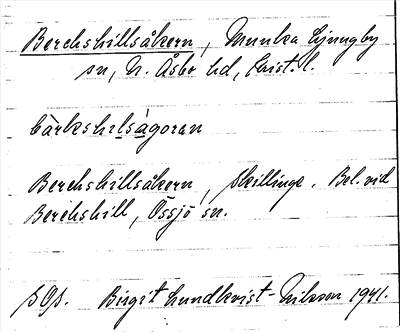 Berchshillsåkern, Munka Ljungby
sn, N. Åsbo hd, Krist. l.
bàrkshilságoran
Berchshillsåkern, Skillinge. Bel. vid
Berchshill, Össjö sn.
SOS. Birgit Lundkvist-Nilsson 1941.